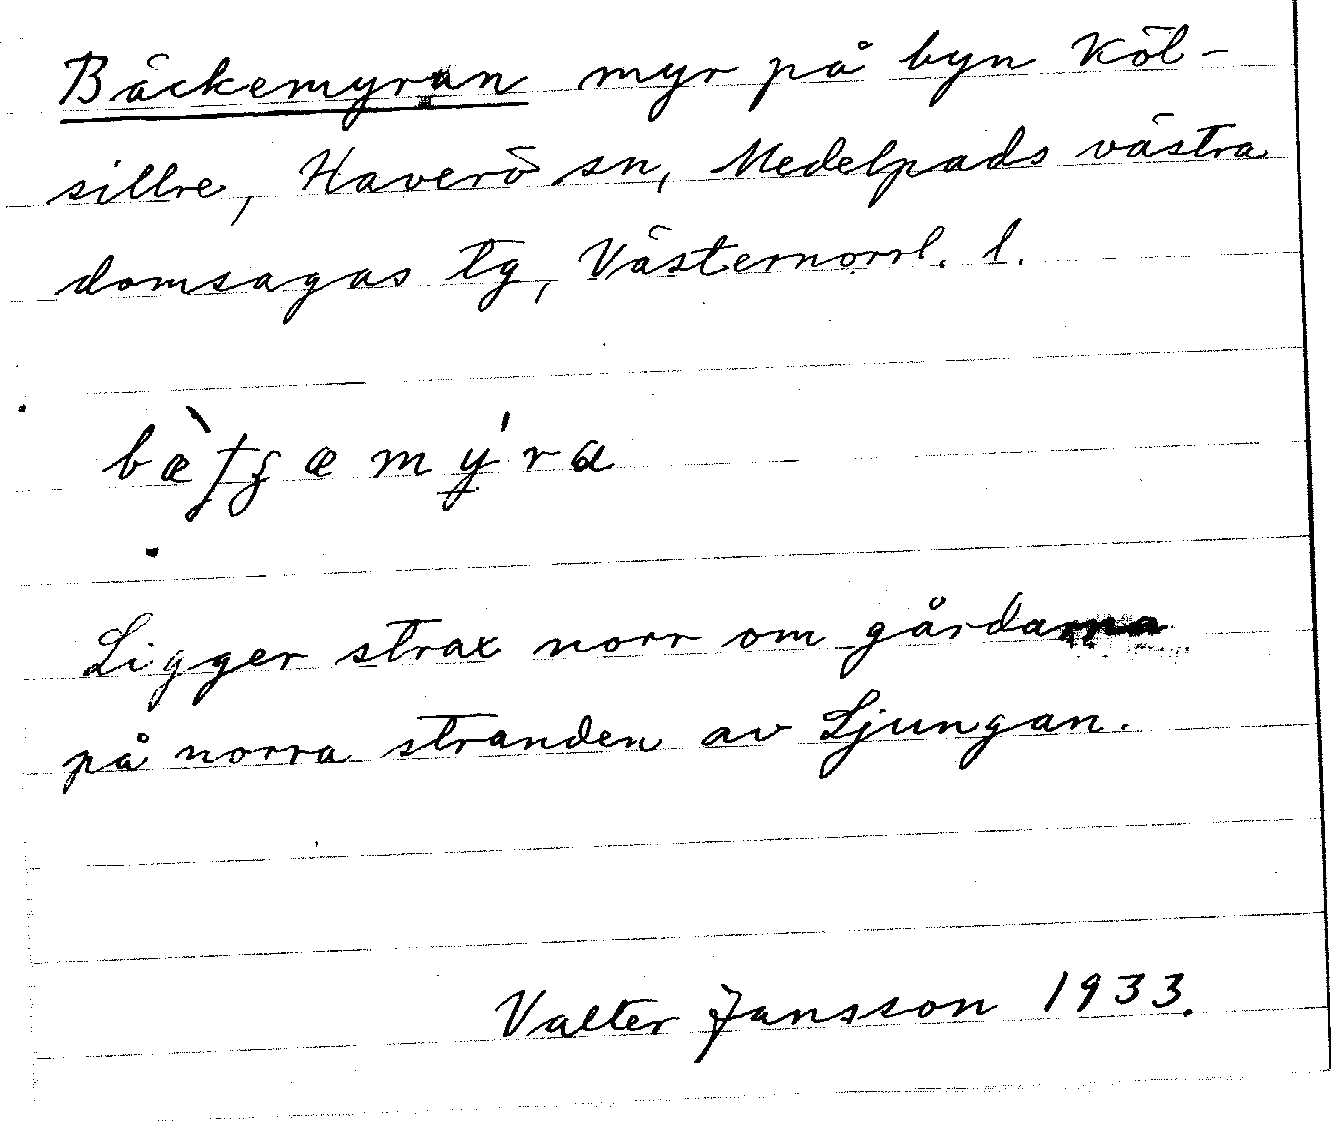 Bäckemyran myr på byn Köl-
sillre, Haverö sn, Medelpads västra
domsagas tg, Västernorrl. l.
Ligger strax norr om gårdarna
på norra stranden av Ljungan.
Valter Jansson 1933.